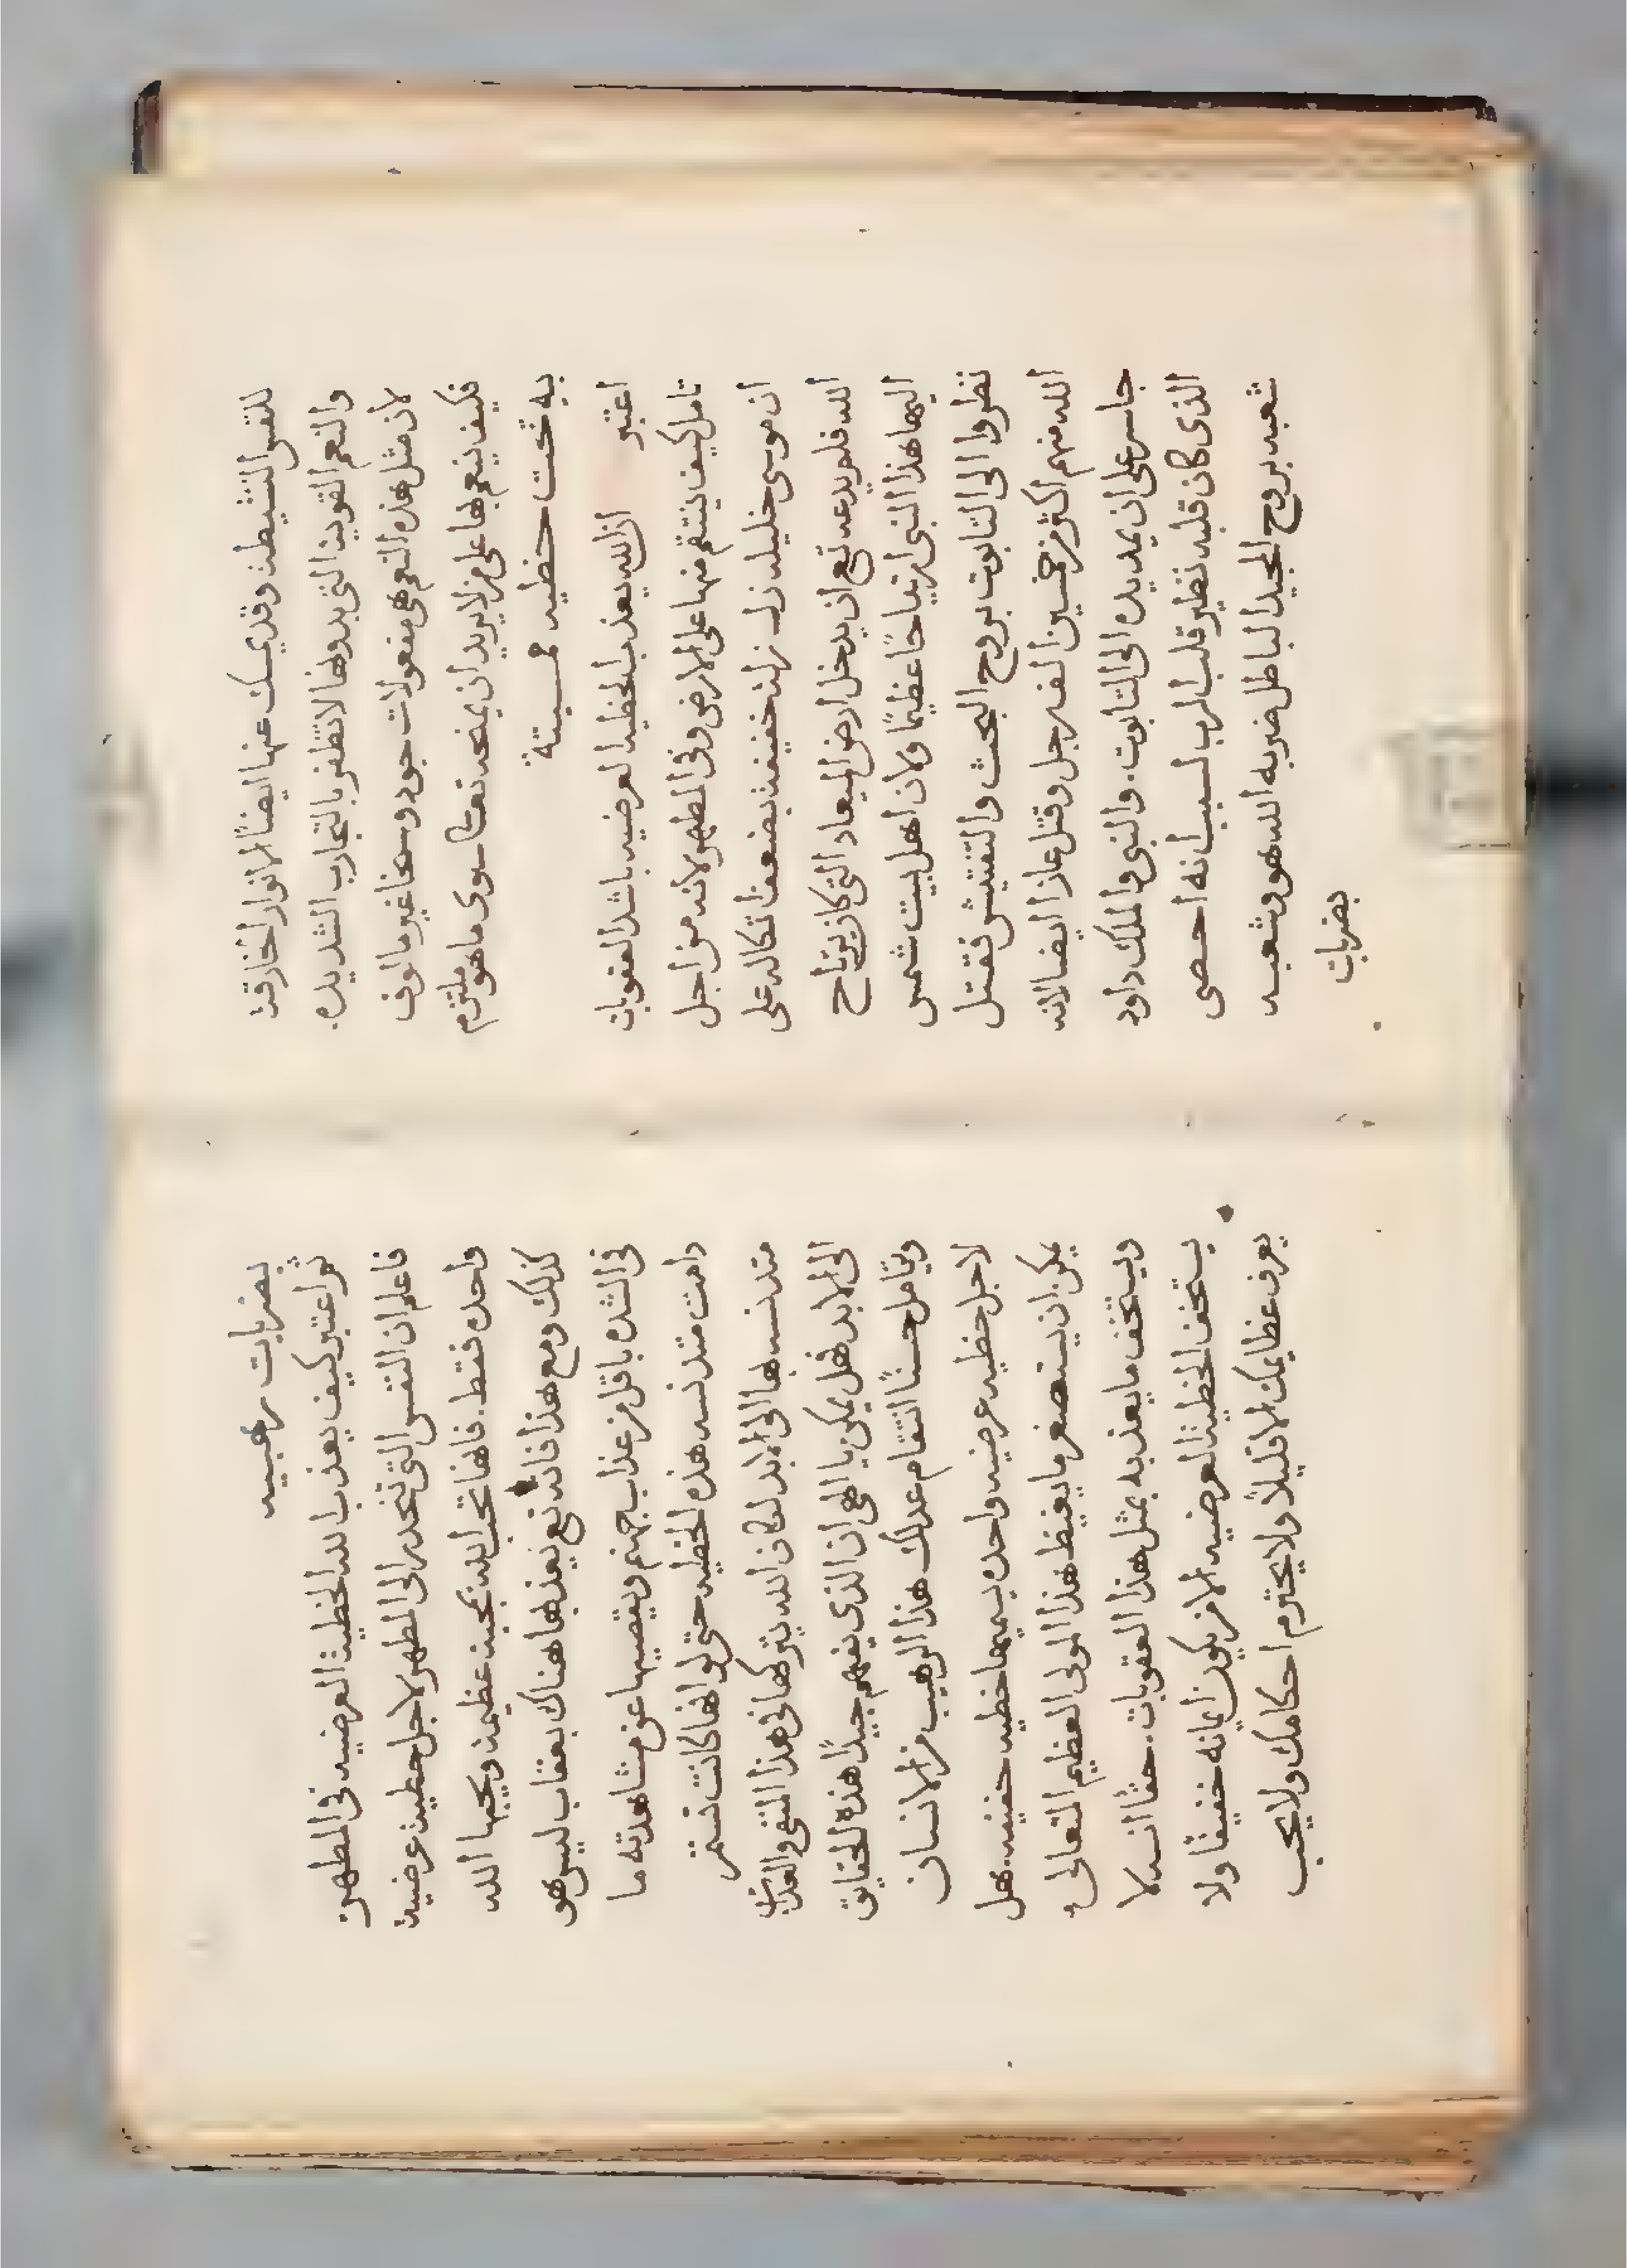 للنفس النشيطة وقد يمسك عنها ايضًا الانوار الخارقة
والنعم القوية التي بدونها لا تظفر بالتجارب الشديده.
لان مثل هذه النعم هي مفعولات جود وسخا غير مالوف
فكيف ينعم بها على من لا يريد ان يمنحه تعالى سوى ما هو ملتزم
به تحت خطيه مميتة
اعتبر ان الله يعذب الخطيه العرضيه باشد العقوبات
تامل كيف ينتقم منها على الارض وفي المطهر لانه من اجل
ان موسى خليله زل زلة خفيفة بضعف اتكاله على
الله فلم يدعه تع ان يدخل ارض الميعاد التي كان يرتاح
اليها هذا النبي ارتياحًا عظيمًا ولان اهل بيت شمس
نظروا الى التابوت بروح البحث والتفتيش فقتل
الله منهم اكثر من خمسين الف رجل وقتل عازا ايضا لانه
جاسر على ان يمد يده الى التابوت. والنبي والملك داود
الذي كان قلبه نظير قلب الرب لسبب انه احصى
شعبه بروح المجد الباطل ضربه الله هو وشعبه
بضربات
بضربات رهيبه
ثم اعتبر كيف يعذب الله الخطية العرضيه في المطهر
فاعلم ان النفس التي تنحدر الى المطهر لاجل خطية عرضية
واحده فقط. فانها تحب الله بمحبة عظيمة ويحبها الله
كذلك ومع هذا فانه تع يعذبها هناك بعقاب ليس هو
في الشده باقل من عذاب جهنم ويقصيها عن مشاهدته ما
دامت متدنسه هذه الخطيه حتى لو انها كانت تستمر
متدنسه بها الى الابد لكان الله يتركها في هذا المنفى والعذاب
الى الابد فهل يمكن يا الهي ان الذي يفهم جيدًا هذه الحقايق
ويتامل حسنًا انتقام عدلك هذا الرهيب من الانسان
لاجل خطيه عرضيه واحده يسميها خطيه خفيفه. هل
يمكن ان يستصغر ما يغيظ هذا المولى العظيم المتعالي
ويستخف ما يعذب به بمثل هذا العقوبات. حقًا انه لا
يستخف الخطية العرضيه الا من يكون ايمانه خفيفًا ولا
يعرف عظايمك الا قليلاً ولا يحترم احكامك ولا يحب